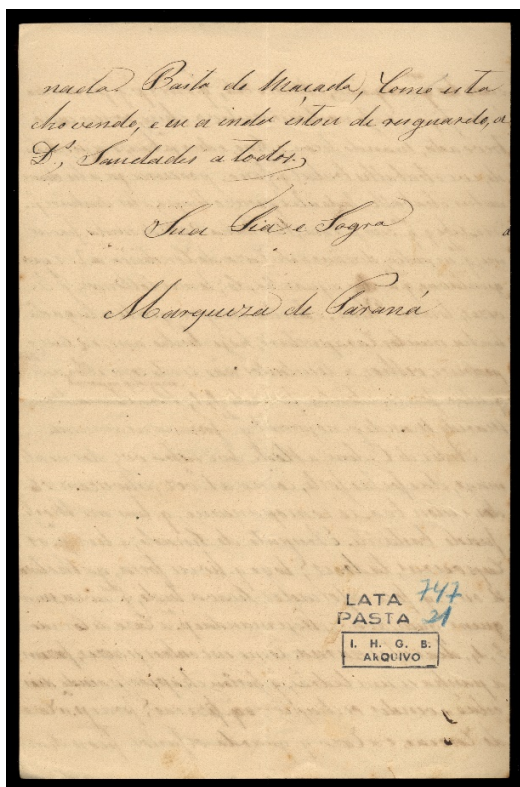 nada. Basta de Massada, como esta
chovendo, e eu ainda estou de resguardo, a
D.s, Saudades a todos,
Sua Tia e Sogra
Marqueza de Paraná
LATA 747
PASTA 21
I. H. G. B.
ARQUIVO